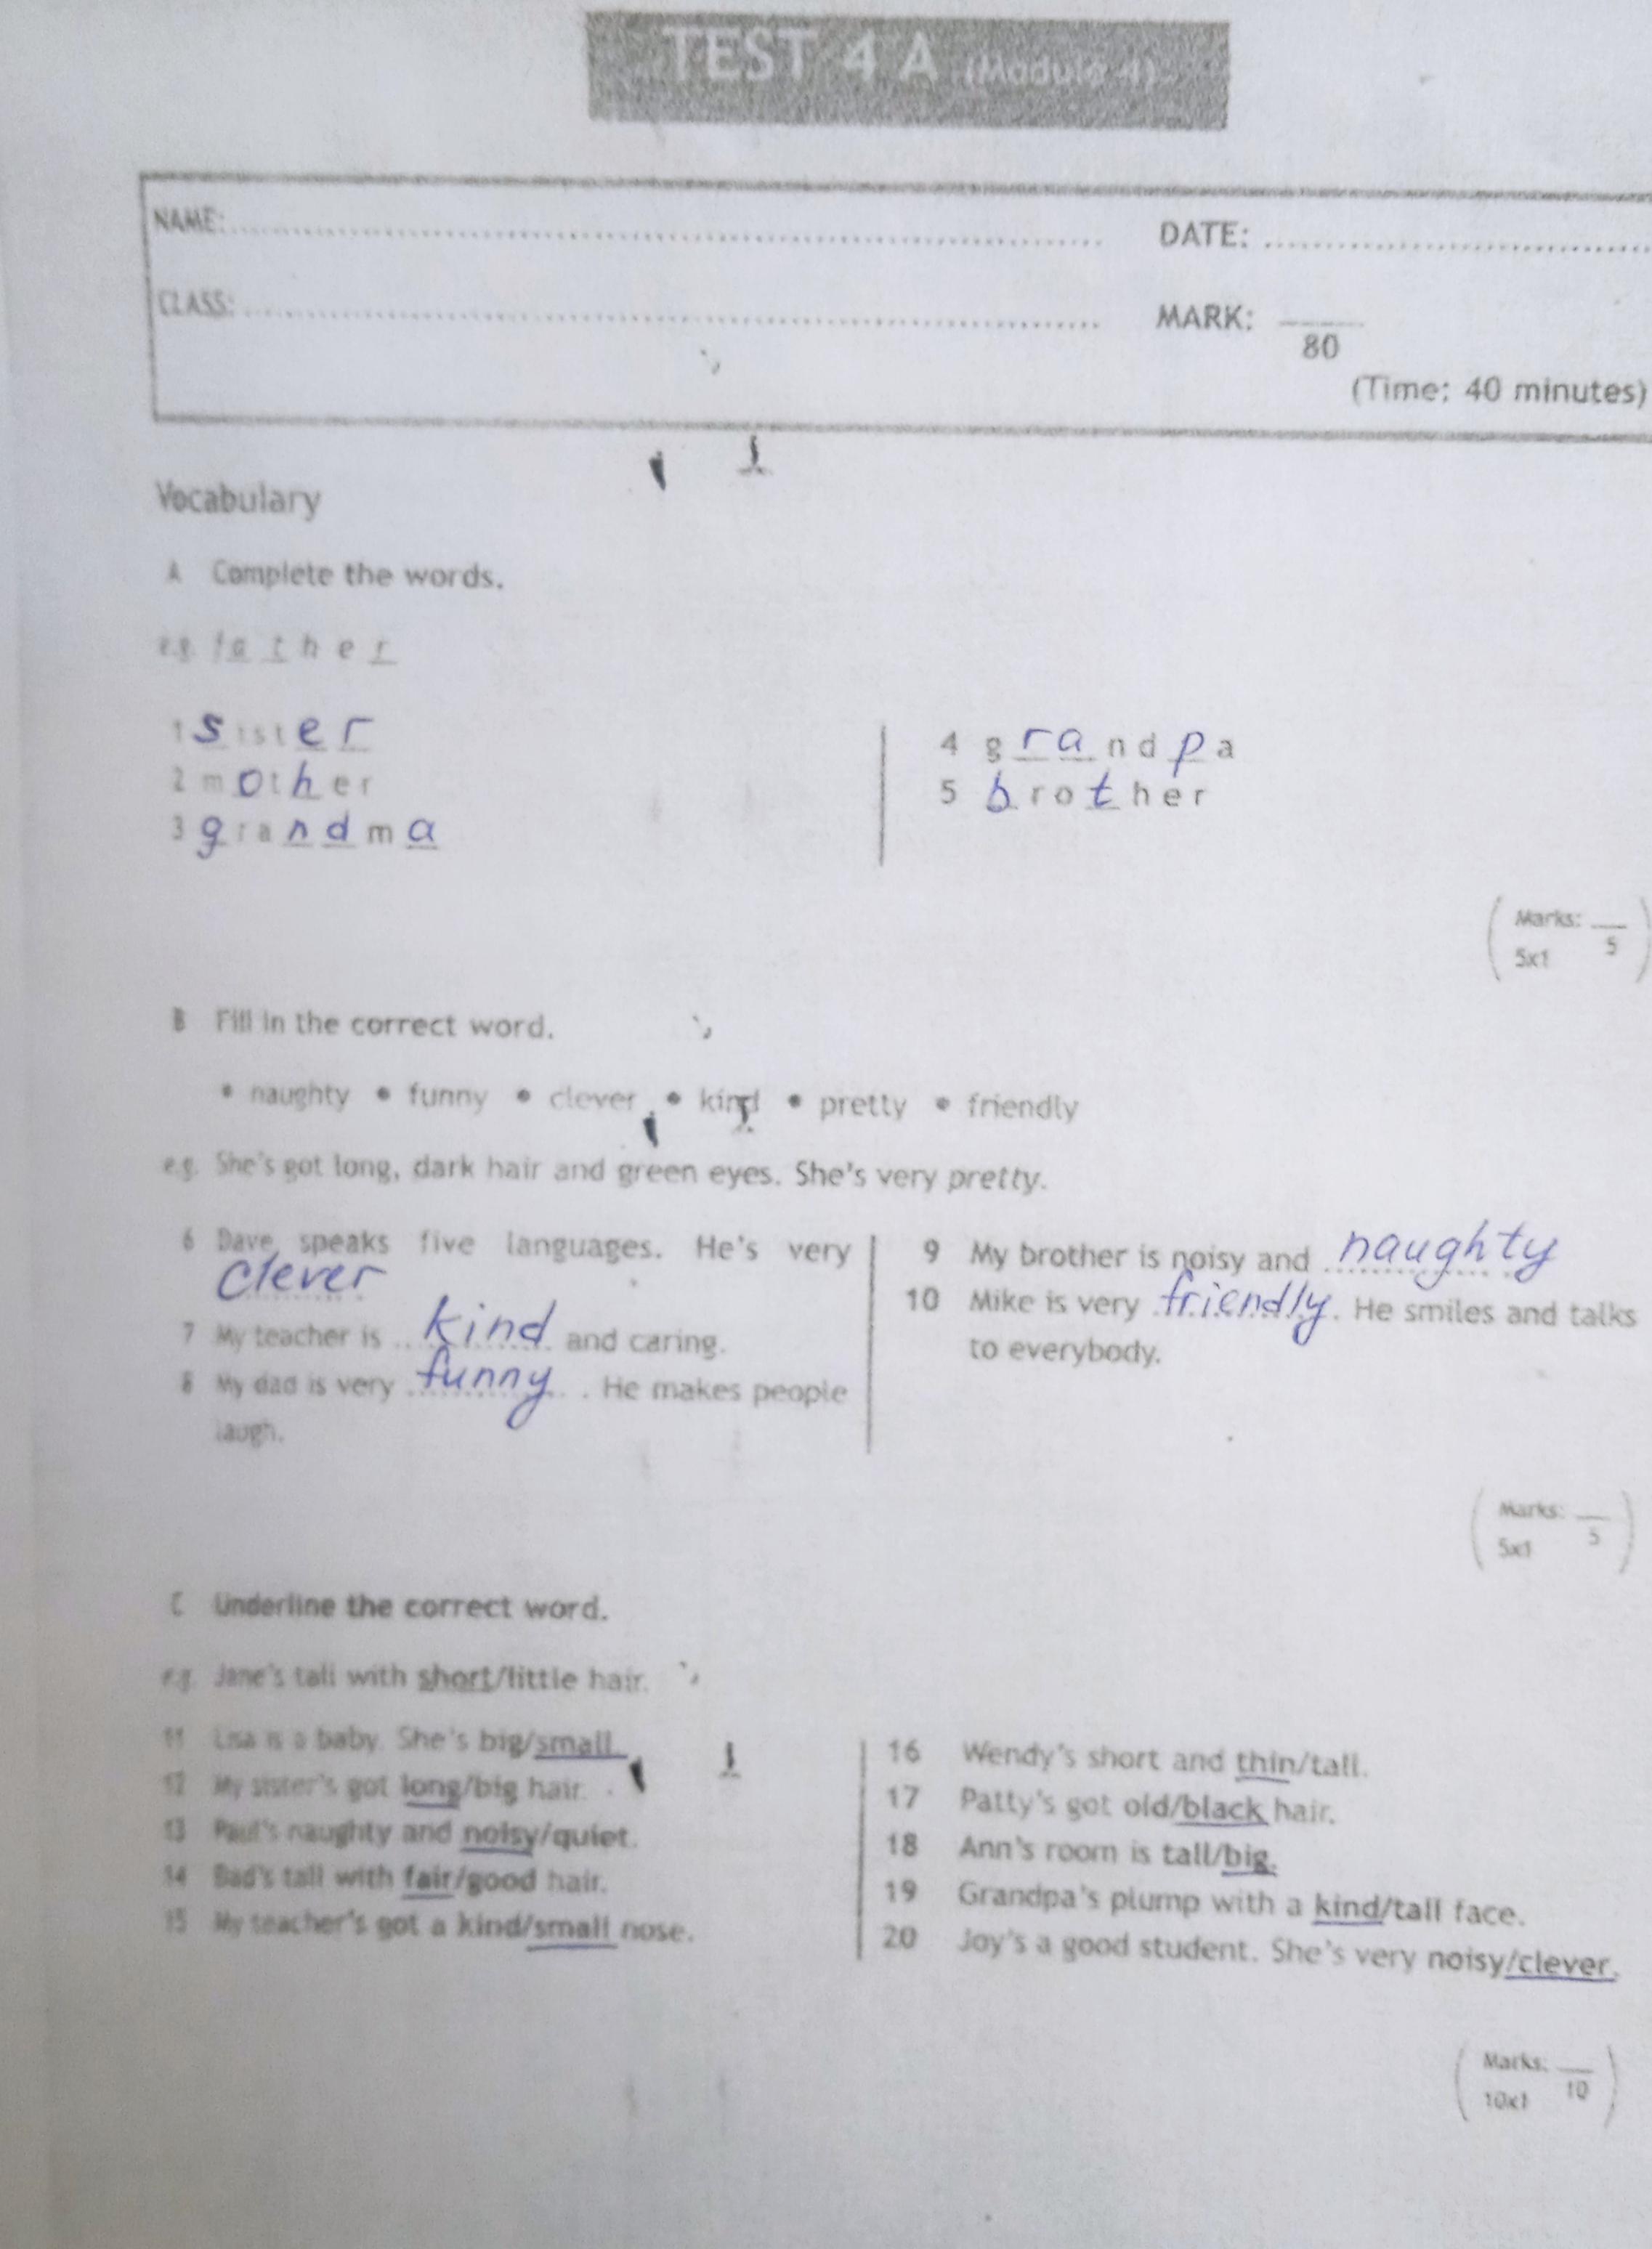 TEST 4 A (Module 4)
NAME:
DATE:
CLASS:
MARK:
80
(Time: 40 minutes)
Vocabulary
A Complete the words.
e.g. father
1 sister
2 mother
3 grandma
4 grandpa
5 brother
Marks:
5x1 5
B Fill in the correct word.
• naughty • funny • clever • kind • pretty • friendly
e.g. She's got long, dark hair and green eyes. She's very pretty.
6 Dave speaks five languages. He's very
clever
7 My teacher is kind and caring.
8 My dad is very funny. He makes people
laugh.
9 My brother is noisy and naughty
10 Mike is very friendly. He smiles and talks
to everybody.
Marks:
5x1 5
C Underline the correct word.
e.g. Jane's tall with short/little hair.
11 Lisa is a baby. She's big/small.
12 My sister's got long/big hair.
13 Paul's naughty and noisy/quiet.
14 Dad's tall with fair/good hair.
15 My teacher's got a kind/small nose.
16 Wendy's short and thin/tall.
17 Patty's got old/black hair.
18 Ann's room is tall/big.
19 Grandpa's plump with a kind/tall face.
20 Joy's a good student. She's very noisy/clever.
Marks:
10x1 10